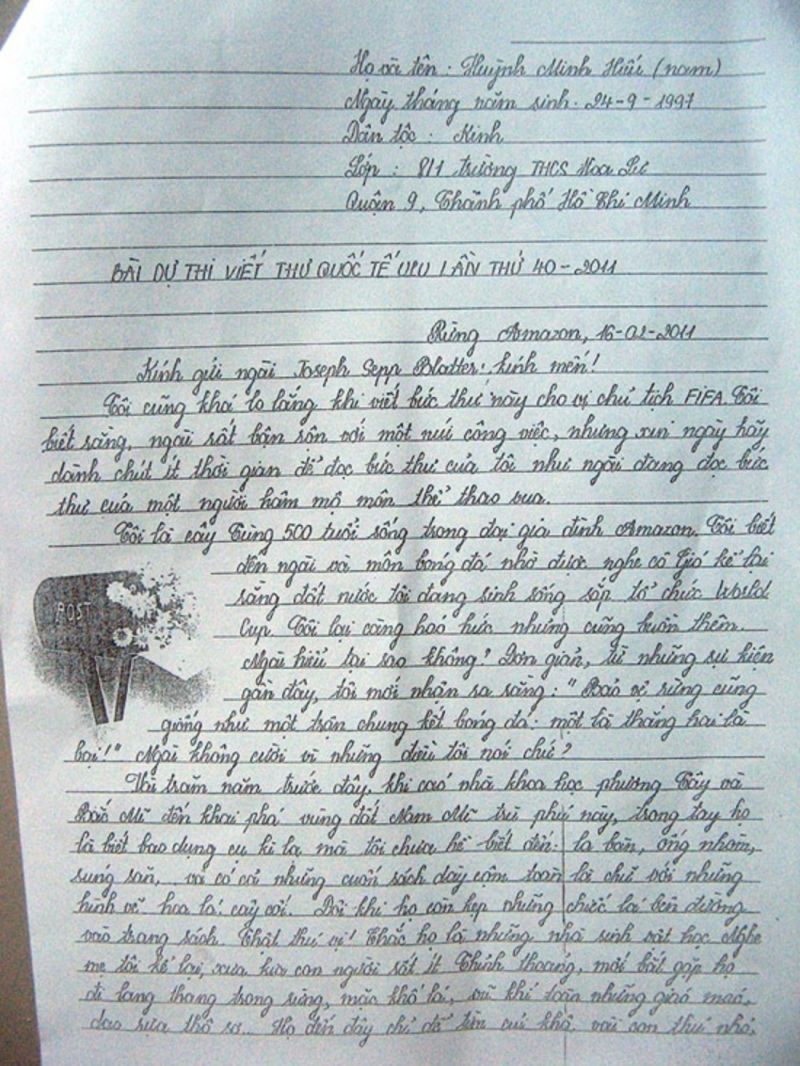 Họ và tên : Huỳnh Minh Hiếu (nam)
Ngày tháng năm sinh : 24-9-1997
Dân tộc : Kinh
Lớp : 8/1 trường THCS Hoa Lư
Quận 9, Thành phố Hồ Chí Minh
BÀI DỰ THI VIẾT THƯ QUỐC TẾ UPU LẦN THỨ 40-2011
Rừng Amazon, 16-02-2011
Kính gửi ngài Joseph Sepp Blatter kính mến!
Tôi cũng khá lo lắng khi viết bức thư này cho vị chủ tịch FIFA. Tôi
biết rằng, ngài rất bận rộn với một núi công việc, nhưng xin ngày hãy
dành chút ít thời gian để đọc bức thư của tôi như ngài đang đọc bức
thư của một người hâm mộ môn thể thao vua.
Tôi là cây Tùng 500 tuổi sống trong đại gia đình Amazon. Tôi biết
đến ngài và môn bóng đá nhờ được nghe cô Gió kể lại
rằng đất nước tôi đang sinh sống sắp tổ chức World
POST
Cup. Tôi lại càng háo hức nhưng cũng buồn thêm.
Ngài hiểu tại sao không? Đơn giản, từ những sự kiện
gần đây, tôi mới nhận ra rằng: "Bảo vệ rừng cũng
giống như một trận chung kết bóng đá: một là thắng hai là
bại!" Ngài không cười vì những điều tôi nói chứ?
Vài trăm năm trước đây, khi các nhà khoa học phương Tây và
Bắc Mĩ đến khai phá vùng đất Nam Mĩ trù phú này, trong tay họ
là biết bao dụng cụ kì lạ mà tôi chưa hề biết đến: la bàn, ống nhòm,
súng săn,... và có cả những cuốn sách dày cộm toàn là chữ với những
hình vẽ hoa lá cây cối. Đôi khi họ còn kẹp những chiếc lá bên đường
vào trang sách. Thật thú vị! Chắc họ là những nhà sinh vật học. Nghe
mẹ tôi kể lại, xưa kia con người rất ít. Thỉnh thoảng, mới bắt gặp họ
đi lang thang trong rừng, mặc khố lá, vũ khí toàn những giáo mác,
dao rựa thô sơ... Họ đến đây chỉ để tìm củi khô, vài con thú nhỏ,